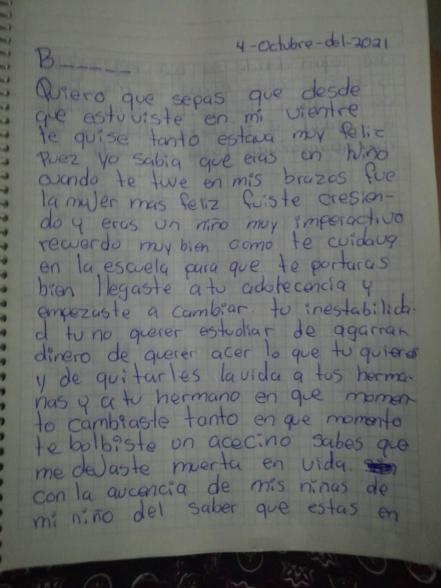 4-Octubre-del-2021
B_____
Quiero que sepas que desde
que estuviste en mi vientre
te quise tanto estava muy feliz
puez yo sabia que eras un niño
cuando te tuve en mis brazos fue
la mujer mas feliz fuiste cresien-
do y eras un niño muy imperactivo
recuerdo muy bien como te cuidava
en la escuela para que te portaras
bien llegaste a tu adotecencia y
empezaste a cambiar. tu inestabilida.
d tu no querer estudiar de agarrar
dinero de querer acer lo que tu quieres
y de quitarles la vida a tus herma-
nas y a tu hermano en que momen
to cambiaste tanto en que momento
te bolbiste un acecino sabes que
me dejaste muerta en vida.
con la aucencia de mis niñas de
mi niño del saber que estas en